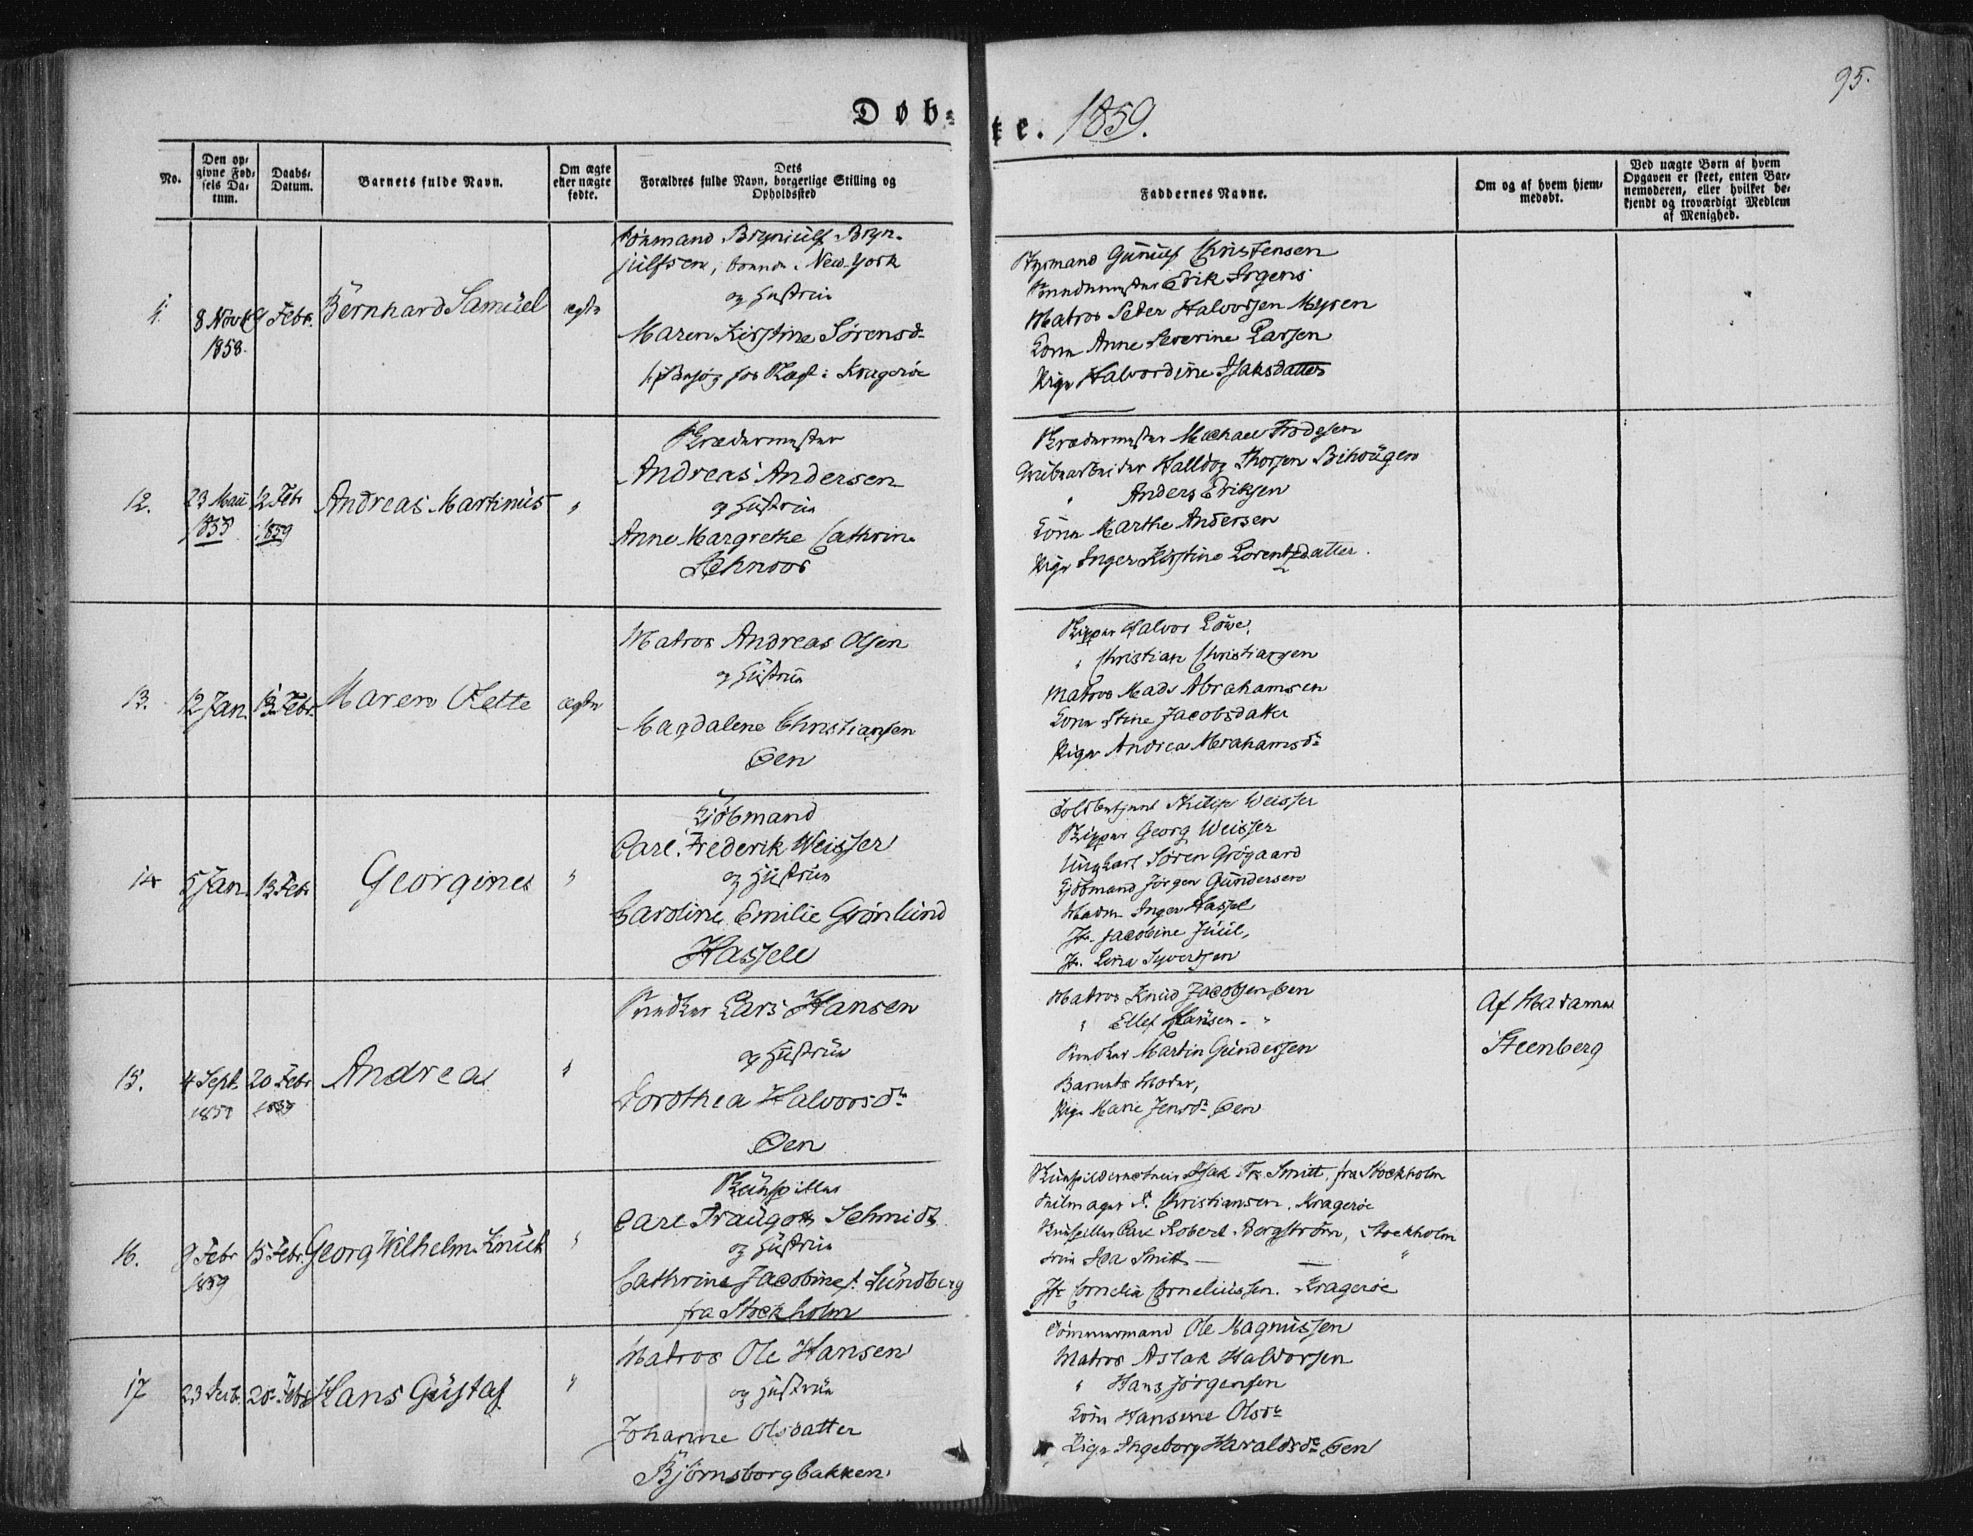 95.
Døb-te. 1859.
No.
Den op-
givne Fød-
sels Da-
tum.
Daabs-
Datum.
Barnets fulde Navn.
Om ægte
eller uægte
fødte.
Dets
Forældres fulde Navn, borgerlige Stilling og
Opholdssted
Faddernes Navne.
Om og af hvem hjem-
medøbt.
Ved uægte Børn af hvem
Opgaven er skeet, enten Bar-
nemoderen, eller hvilket be-
kjendt og troværdigt Medlem
af Menighed.
8 Novb.
1858.
9 Febr.
Bernhard Samuel
ægte
Sømand Brynjulf Bryn-
julfsen, New-York
og Hustrue
Maren Kirstine Sørensd.
Kragerøe
Styrmand Gunulf Christensen
Erik Irgens
Matros Peder Halvorsen Myren
Kone Anne Severine Larsen
Pige Halvordine Isaksdatter
12.
23 Maii
12 Febr
1859
Andreas Martinus
"
Skrædermester
Andreas Andersen
og Hustrue
Anne Margrethe Cathrine
Schnoor
Skrædermester Michael Frodesen
Halldog Thorsen Bihougen
" Anders Eriksen
Kone Marthe Andersen
Pige Inger Kirstine Lorentzdatter.
13.
12 Jan.
13 Febr.
Maren Olette
ægte
Matros Andreas Olsen
og Hustrue
Magdalene Christiansen
Øen
Skipper Halvor Löwe,
" Christian Christiansen
Matros Mads Abrahamsen
Kone Stine Jacobsdatter
Pige Andrea Abrahamsdr
14
5 Jan.
13 Febr
Georgine
"
Kjøbmand
Carl Frederik Weisser
og Hustrue
Caroline Emilie Grønlund
Hassele
Toldbetjent Philip Weisser
Skipper Georg Weisser
Ungkarl Søren Grøgaard
Kjøbmand Jørgen Gundersen
Madm Inger Hassel
Jfr. Jacobine Juul,
Jfr. Lena Syvertsen
15.
4 Sept.
20 Febr
1859
Andrea
"
Snedker Lars Hansen
og Hustrue
Dorothea Halvorsdr
Øen
Matros Knud Jacobsen Øen
" Ellef Hansen - "
Snedker Martin Gundersen
Barnets Moder,
Pige Marie Jensdr Øen
Af Madame
Steenberg
16.
9 Febr
1859
15 Febr.
Georg Wilhelm Knuth
"
Skuespiller
Carl Traugott Schmidt
og Hustrue
Cathrine Jacobine f. Sundberg
fra Stockholm
Isak Fr. Smitt, fra Stockholm
Christiansen, Kragerøe
Skuespiller Carl Robert Bergstrøm, Stockholm
Frue Ida Smitt — "
Jfr Cornelia Corneliussen. Kragerøe
17
20 Febr
Hans Gustaf
"
Matros Ole Hansen
og Hustrue
Johanne Olsdatter
Bjørnsborgbakken
Tømmermand Ole Magnussen
Matros Aslak Halvorsen
" Hans Jørgensen
Kone Hansine Olsdr
Pige Ingeborg Haraldsdr Øen